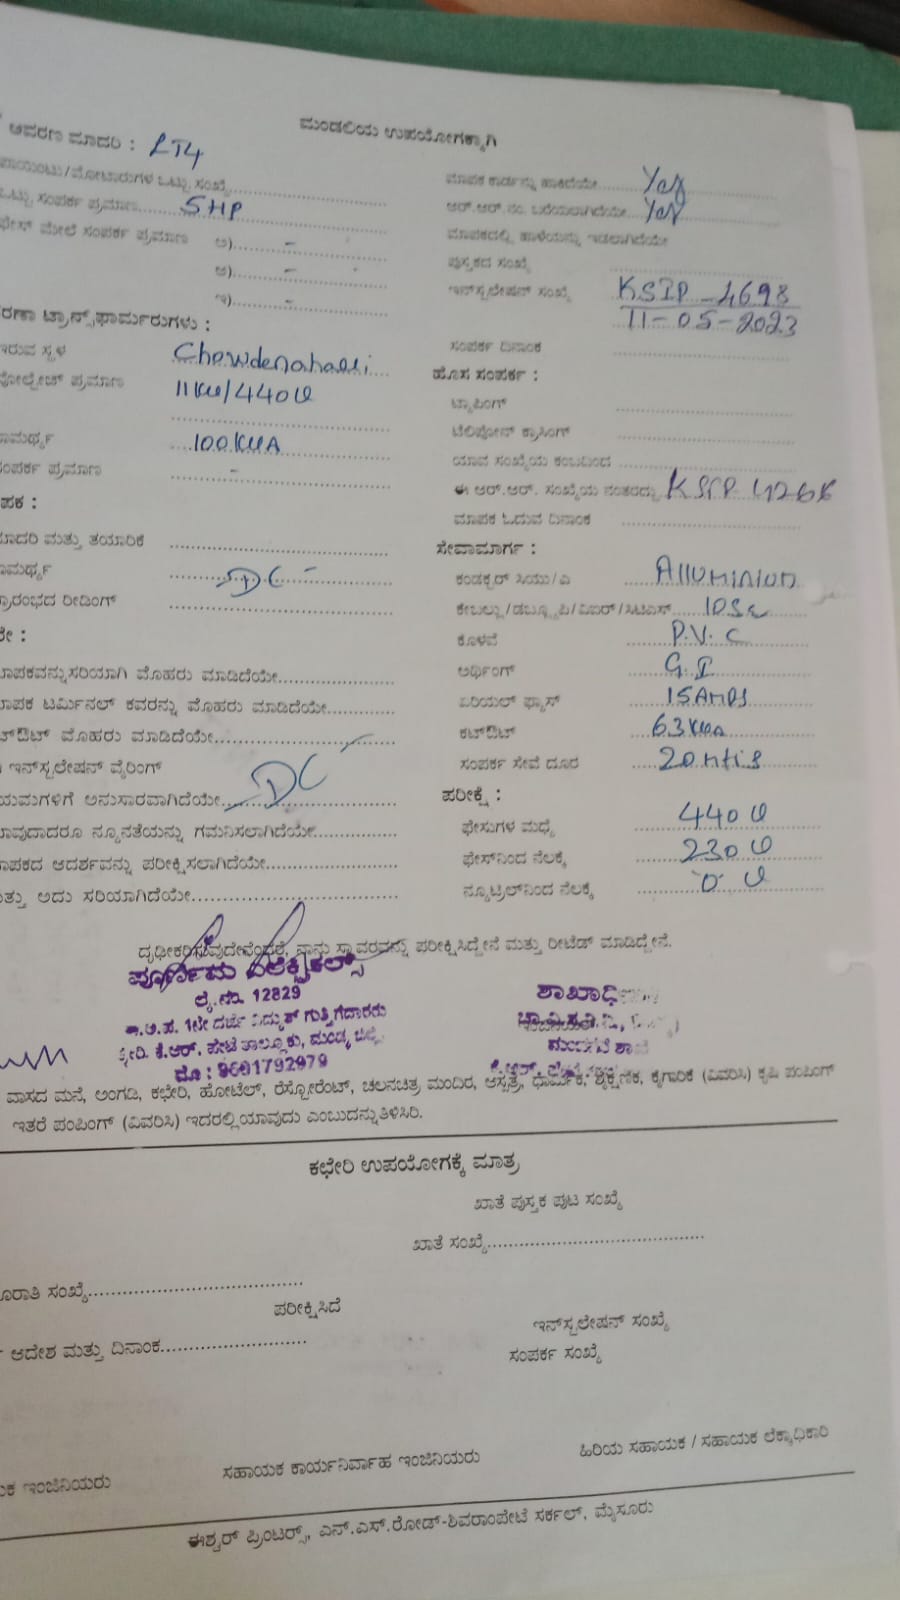 ಮಂಡಲಿಯ ಉಪಯೋಗಕ್ಕಾಗಿ
ಆವರಣ ಮಾದರಿ : LT4
ಪಾಯಿಂಟು/ಮೋಟಾರುಗಳ ಒಟ್ಟು ಸಂಖ್ಯೆ
ಒಟ್ಟು ಸಂಪರ್ಕ ಪ್ರಮಾಣ 5HP
ಫೇಸ್ ಮೇಲೆ ಸಂಪರ್ಕ ಪ್ರಮಾಣ ಅ) -
ಆ) -
ಇ) -
ಟ್ರಾನ್ಸ್‌ಫಾರ್ಮರುಗಳು :
ಇರುವ ಸ್ಥಳ Chowdenahalli
ವೋಲ್ಟೇಜ್ ಪ್ರಮಾಣ 11KV/440V
100KVA
ಸಂಪರ್ಕ ಪ್ರಮಾಣ -
ಮಾದರಿ ಮತ್ತು ತಯಾರಿಕೆ
DC
ಪ್ರಾರಂಭದ ರೀಡಿಂಗ್
ಮಾಪಕವನ್ನು ಸರಿಯಾಗಿ ಮೊಹರು ಮಾಡಿದೆಯೇ
ಮಾಪಕ ಟರ್ಮಿನಲ್ ಕವರನ್ನು ಮೊಹರು ಮಾಡಿದೆಯೇ
ಕಟ್‌ಔಟ್ ಮೊಹರು ಮಾಡಿದೆಯೇ
ಇನ್‌ಸ್ಟಲೇಷನ್ ವೈರಿಂಗ್
ನಿಯಮಗಳಿಗೆ ಅನುಸಾರವಾಗಿದೆಯೇ DC
ಯಾವುದಾದರೂ ನ್ಯೂನತೆಯನ್ನು ಗಮನಿಸಲಾಗಿದೆಯೇ
ಮಾಪಕದ ಆದರ್ಶವನ್ನು ಪರೀಕ್ಷಿಸಲಾಗಿದೆಯೇ
ಮತ್ತು ಅದು ಸರಿಯಾಗಿದೆಯೇ
ಮಾಪಕ ಕಾರ್ಡನ್ನು ಹಾಕಿದೆಯೇ Yes
ಆರ್.ಆರ್.ನಂ. ಬರೆಯಲಾಗಿದೆಯೇ Yes
ಮಾಪಕದಲ್ಲಿ ಹಾಳೆಯನ್ನು ಇಡಲಾಗಿದೆಯೇ
ಪುಸ್ತಕದ ಸಂಖ್ಯೆ
ಇನ್‌ಸ್ಟಲೇಷನ್ ಸಂಖ್ಯೆ KSIP-4698
11-05-2023
ಸಂಪರ್ಕ ದಿನಾಂಕ
ಹೊಸ ಸಂಪರ್ಕ :
ಟ್ಯಾಪಿಂಗ್
ಟೆಲಿಫೋನ್ ಕ್ರಾಸಿಂಗ್
ಯಾವ ಸಂಖ್ಯೆಯ ಕಂಬದಿಂದ
ಈ ಆರ್.ಆರ್. ಸಂಖ್ಯೆಯ ನಂತರದ್ದು KSIP
ಮಾಪಕ ಓದುವ ದಿನಾಂಕ
ಸೇವಾಮಾರ್ಗ :
ಕಂಡಕ್ಟರ್ ಸಿಯು/ಎ Alluminium
ಕೇಬಲ್ಲು/ಡಬ್ಲ್ಯೂಪಿ/ವಿಐಆರ್/ಸಿಟಿಎಸ್
ಕೊಳವೆ P.V.C
ಅರ್ಥಿಂಗ್ G.I
ಏರಿಯಲ್ ಫ್ಯೂಸ್ 15 Amps
ಕಟ್‌ಔಟ್ 63 KVA
ಸಂಪರ್ಕ ಸೇವೆ ದೂರ 20 mtrs
ಪರೀಕ್ಷೆ :
ಫೇಸುಗಳ ಮಧ್ಯೆ 440 V
ಫೇಸ್‌ನಿಂದ ನೆಲಕ್ಕೆ 230 V
ನ್ಯೂಟ್ರಲ್‌ನಿಂದ ನೆಲಕ್ಕೆ 0 V
ದೃಢೀಕರಿಸುವುದೇನೆಂದರೆ, ನಾನು ಸ್ಥಾವರವನ್ನು ಪರೀಕ್ಷಿಸಿದ್ದೇನೆ ಮತ್ತು ರೀಟೆಡ್ ಮಾಡಿದ್ದೇನೆ.
ಪೂರ್ಣಿಮ ಎಲೆಕ್ಟ್ರಿಕಲ್ಸ್
ಲೈ.ನಂ. 12829
1ನೇ ದರ್ಜೆ ವಿದ್ಯುತ್ ಗುತ್ತಿಗೆದಾರರು
ಕೆ.ಆರ್. ಪೇಟೆ ತಾಲ್ಲೂಕು, ಮಂಡ್ಯ ಜಿಲ್ಲೆ
ಮೊ : 9601792979
ವಾಸದ ಮನೆ, ಅಂಗಡಿ, ಕಛೇರಿ, ಹೋಟೆಲ್, ರೆಸ್ಟೋರೆಂಟ್, ಚಲನಚಿತ್ರ ಮಂದಿರ, ಆಸ್ಪತ್ರೆ, ಧಾರ್ಮಿಕ, ಶೈಕ್ಷಣಿಕ, ಕೈಗಾರಿಕೆ (ವಿವರಿಸಿ) ಕೃಷಿ ಪಂಪಿಂಗ್
ಇತರೆ ಪಂಪಿಂಗ್ (ವಿವರಿಸಿ) ಇದರಲ್ಲಿ ಯಾವುದು ಎಂಬುದನ್ನು ತಿಳಿಸಿರಿ.
ಕಛೇರಿ ಉಪಯೋಗಕ್ಕೆ ಮಾತ್ರ
ಖಾತೆ ಪುಸ್ತಕ ಪುಟ ಸಂಖ್ಯೆ
ಖಾತೆ ಸಂಖ್ಯೆ
ಸಂಖ್ಯೆ
ಪರೀಕ್ಷಿಸಿದೆ
ಇನ್‌ಸ್ಟಲೇಷನ್ ಸಂಖ್ಯೆ
ಆದೇಶ ಮತ್ತು ದಿನಾಂಕ
ಸಂಪರ್ಕ ಸಂಖ್ಯೆ
ಇಂಜಿನಿಯರು
ಸಹಾಯಕ ಕಾರ್ಯನಿರ್ವಾಹ ಇಂಜಿನಿಯರು
ಹಿರಿಯ ಸಹಾಯಕ / ಸಹಾಯಕ ಲೆಕ್ಕಾಧಿಕಾರಿ
ಈಶ್ವರ್ ಪ್ರಿಂಟರ್ಸ್, ಎನ್.ಎಸ್.ರೋಡ್-ಶಿವರಾಂಪೇಟೆ ಸರ್ಕಲ್, ಮೈಸೂರು